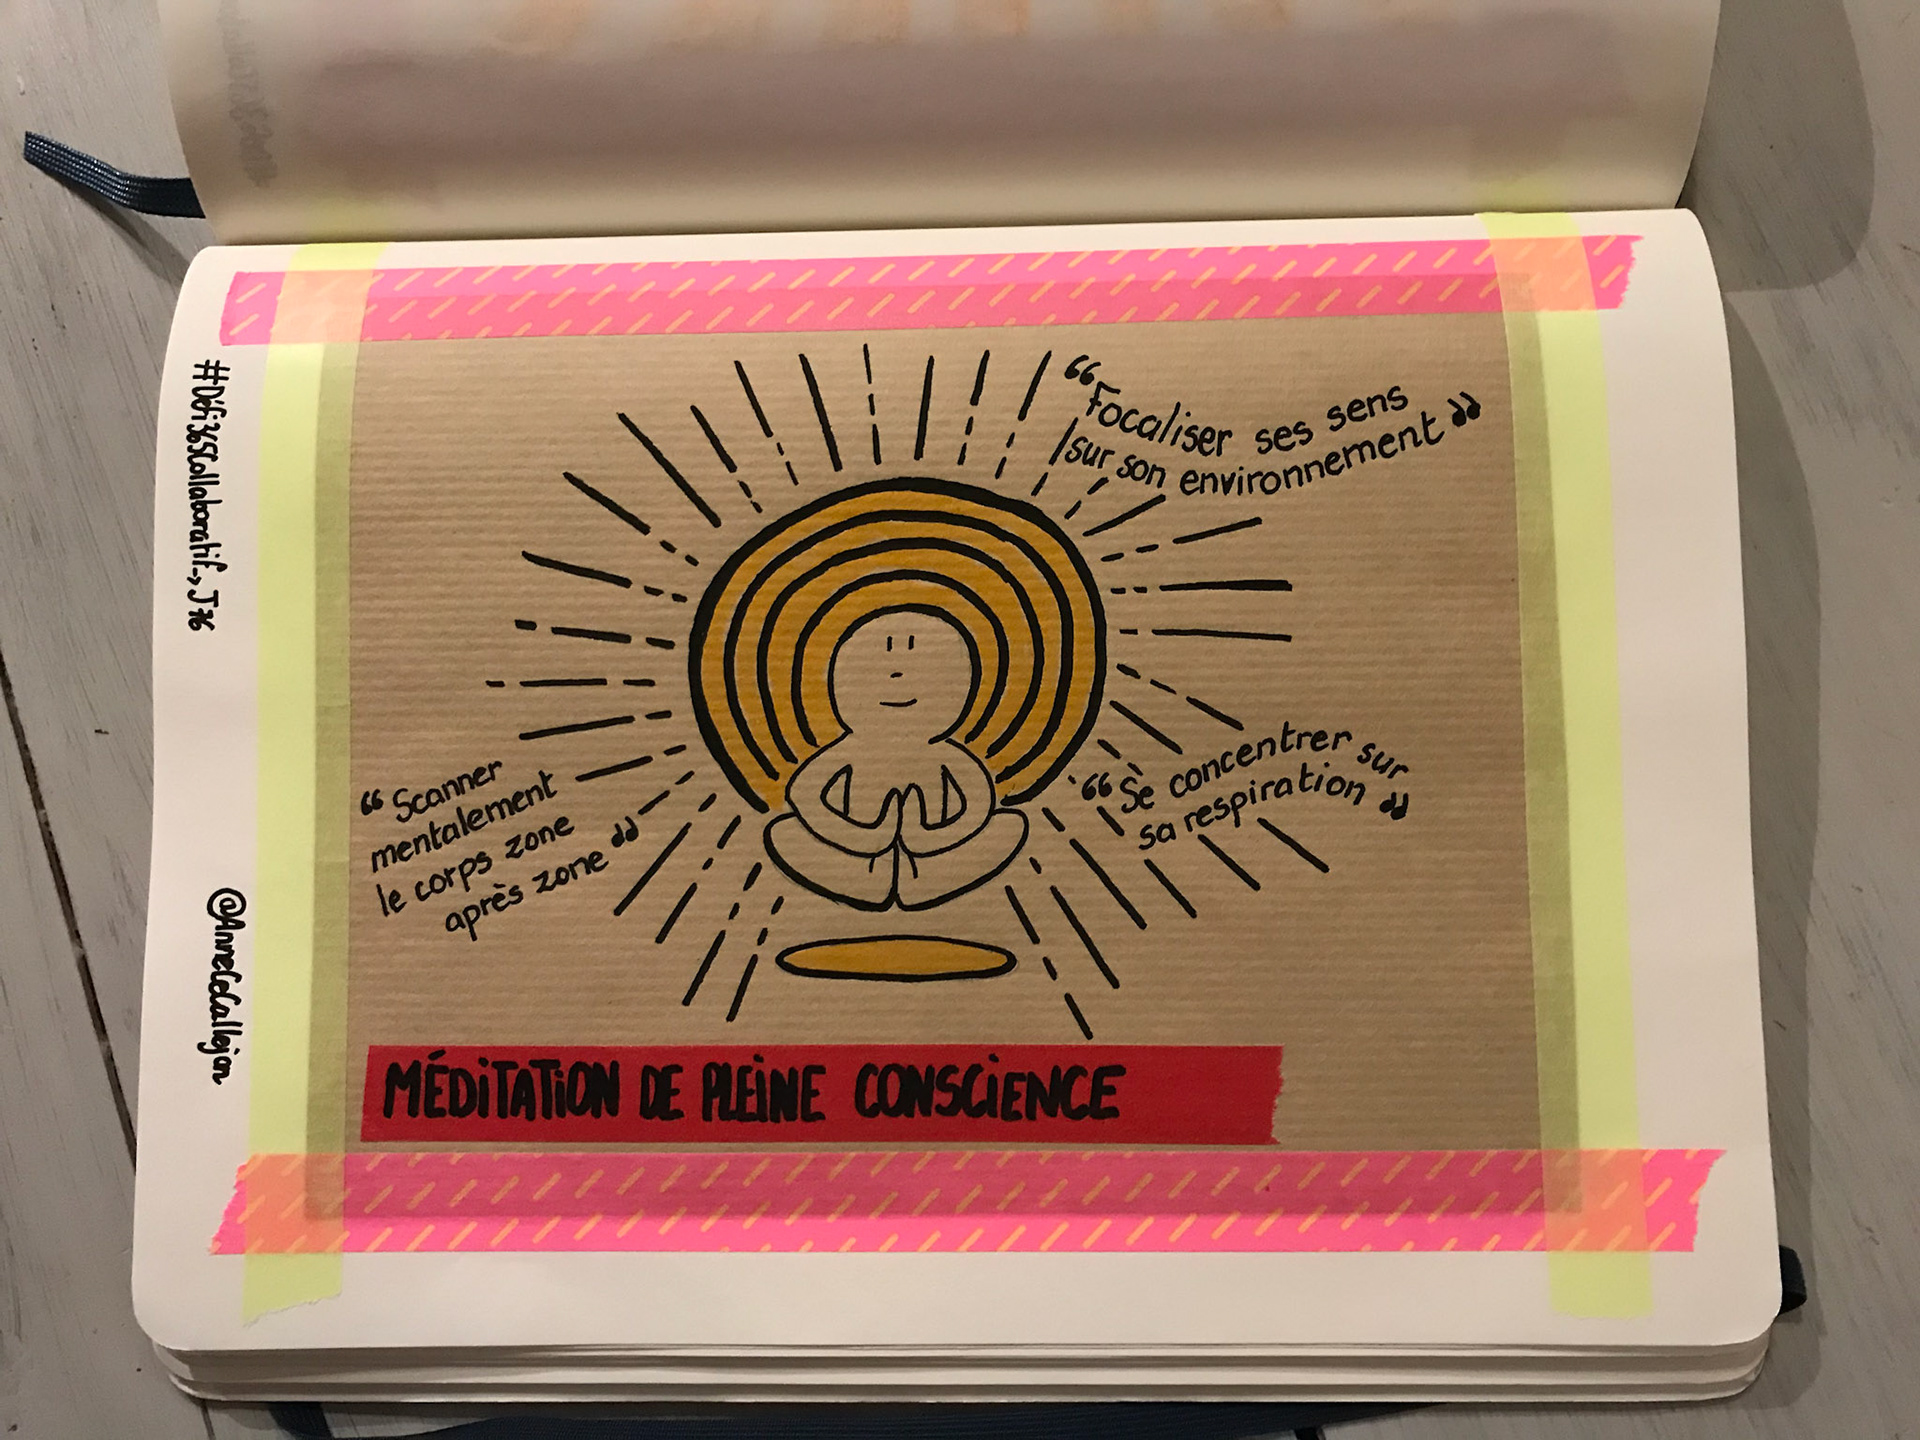 “Focaliser ses sens
sur son environnement”
“Scanner
mentalement
le corps zone
après zone”
“Se concentrer sur
sa respiration”
MÉDITATION DE PLEINE CONSCIENCE
#Défi365Collaboratif_J76
@AnneCeCallejon